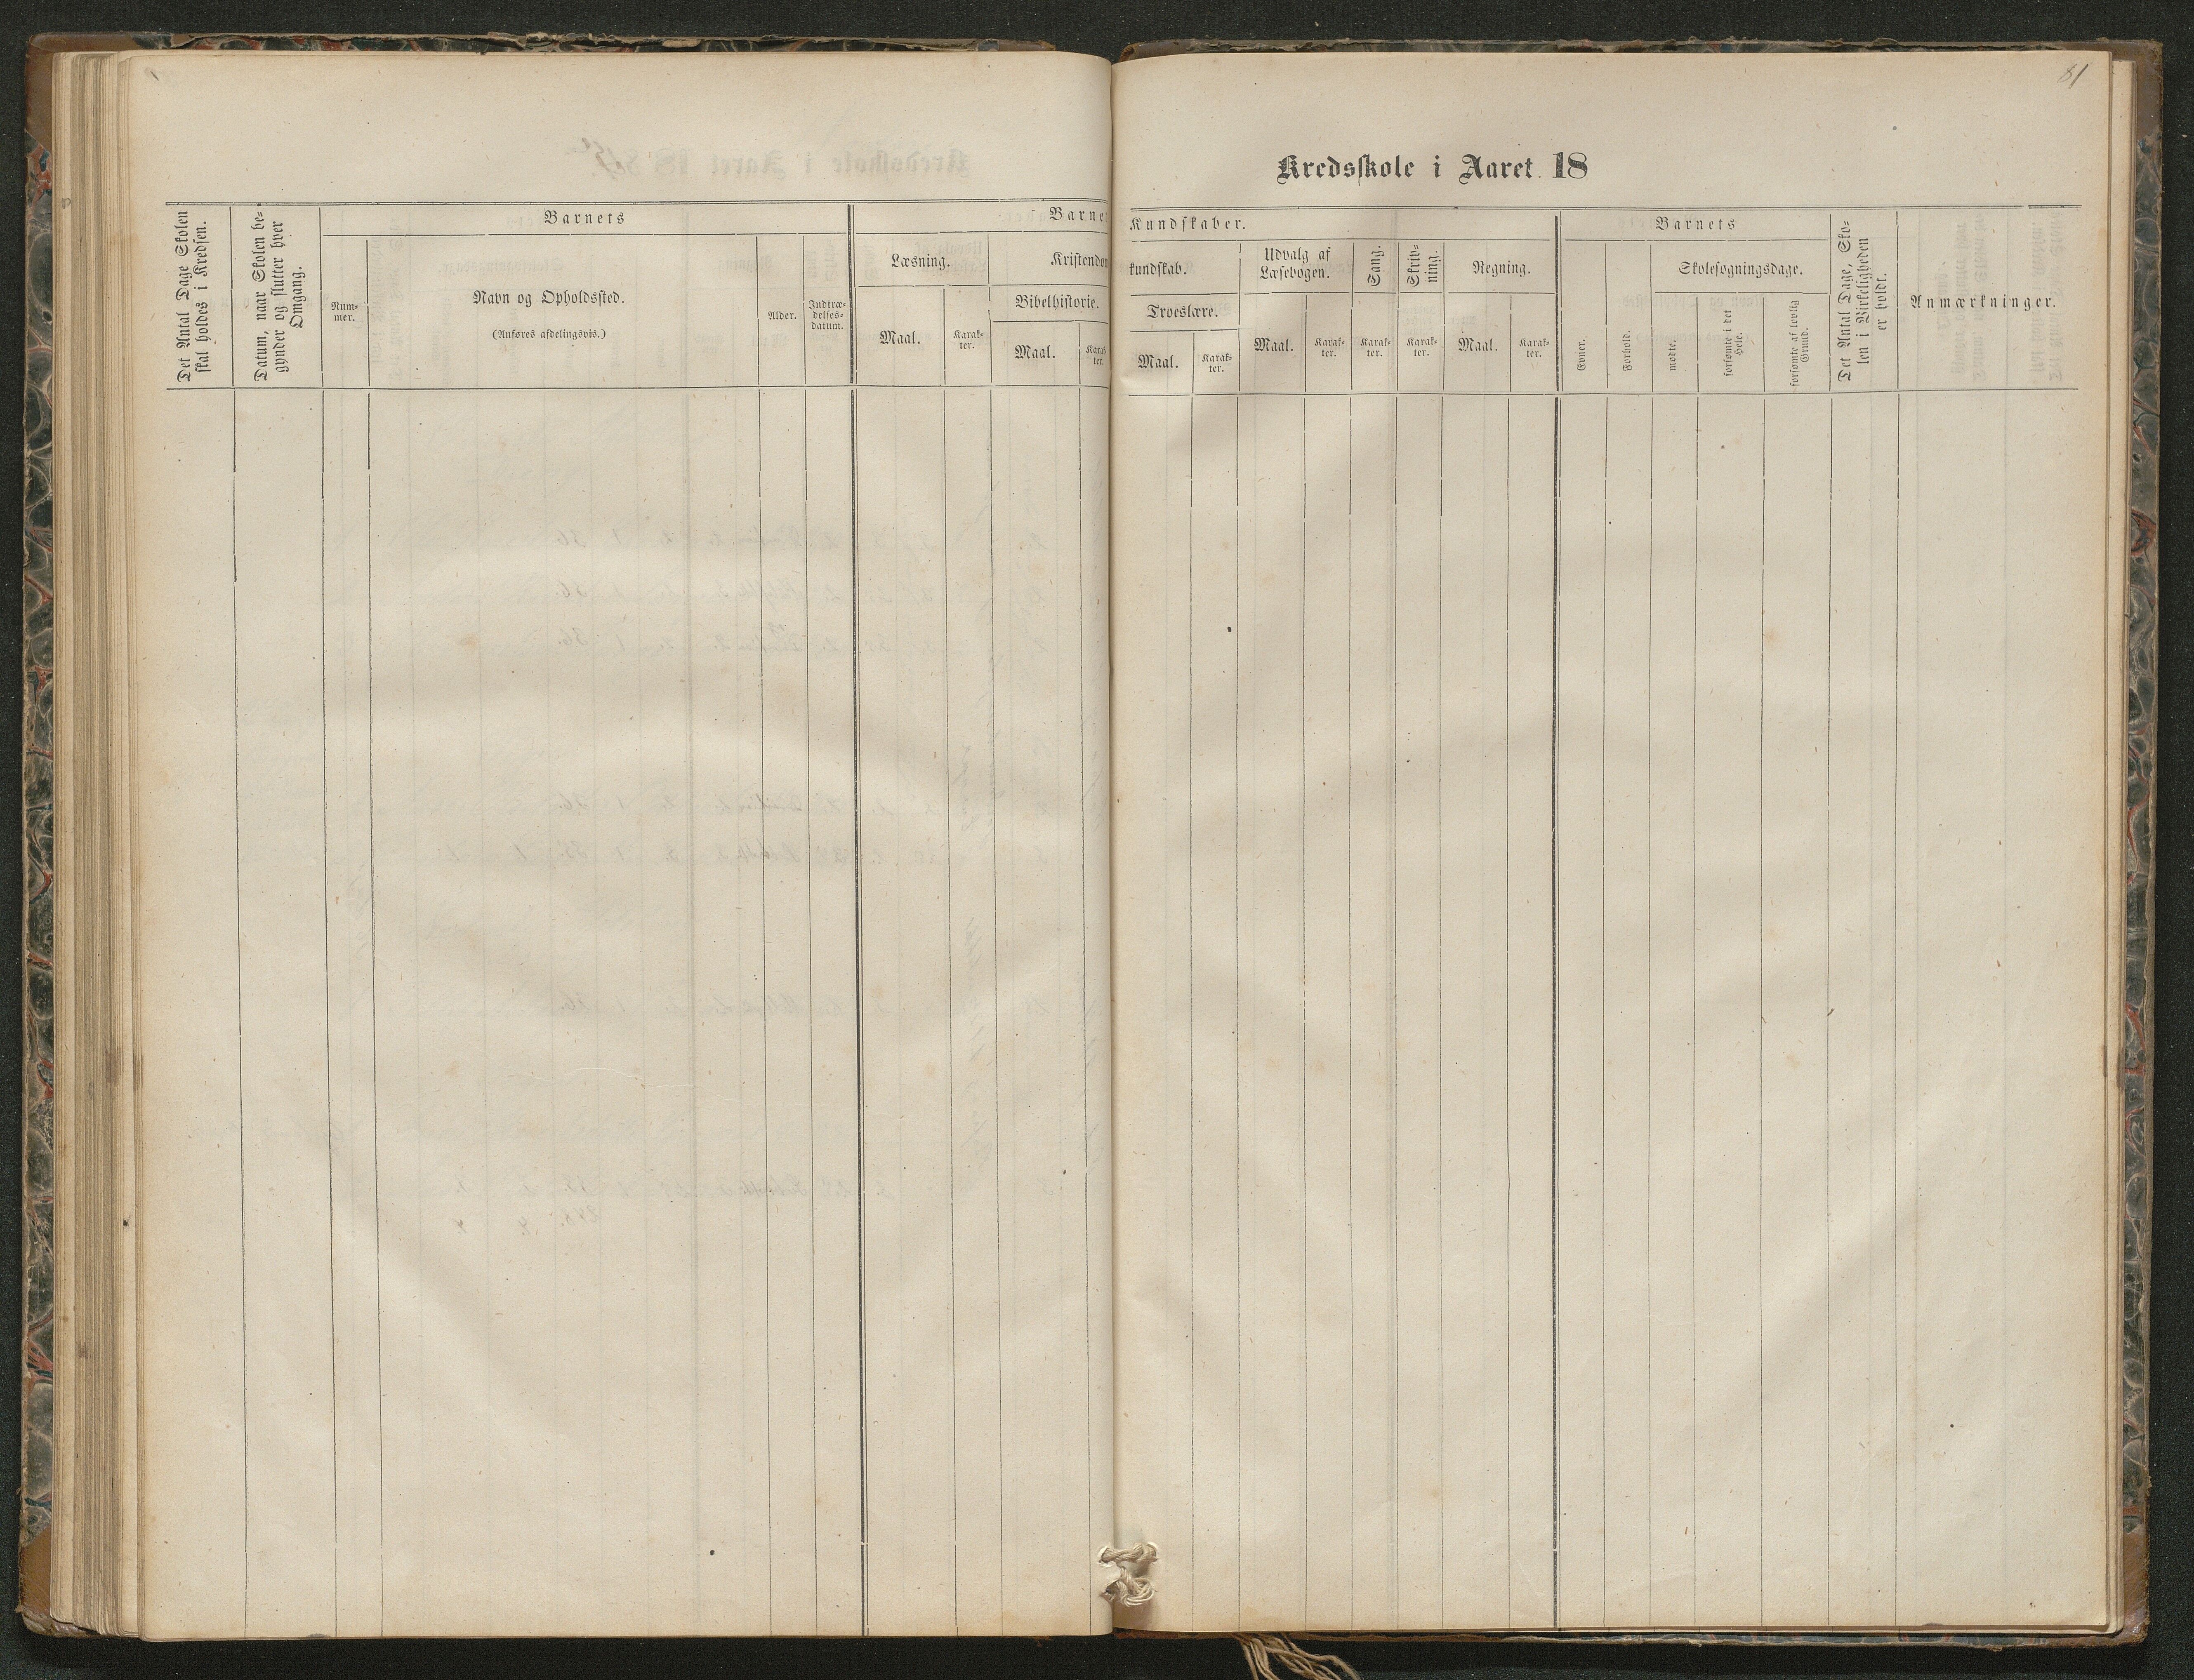 81
Kredsskole i Aaret 18
Det Antal Dage Skolen
skal holdes i Kredsen.
Datum, naar Skolen be-
gynder og slutter hver
Omgang.
Barnets
Num-
mer.
Navn og Opholdssted.
(Anføres afdelingsvis.)
Alder.
Indtræ-
delses-
datum.
Barne
Læsning.
Maal.
Karak-
ter.
Kristendom
Bibelhistorie.
Maal.
Karak-
ter.
Kundskaber.
kundskab.
Troeslære.
Maal.
Karak-
ter.
Udvalg af
Læsebogen.
Maal.
Karak-
ter.
Sang.
Karak-
ter.
Skriv-
ning.
Karak-
ter.
Regning.
Maal.
Karak-
ter.
Barnets
Evner.
Forhold.
Skolesøgningsdage.
mødte.
forsømte i det
Hele.
forsømte af lovlig
Grund.
Det Antal Dage, Sko-
len i Virkeligheden
er holdt.
Anmærkninger.